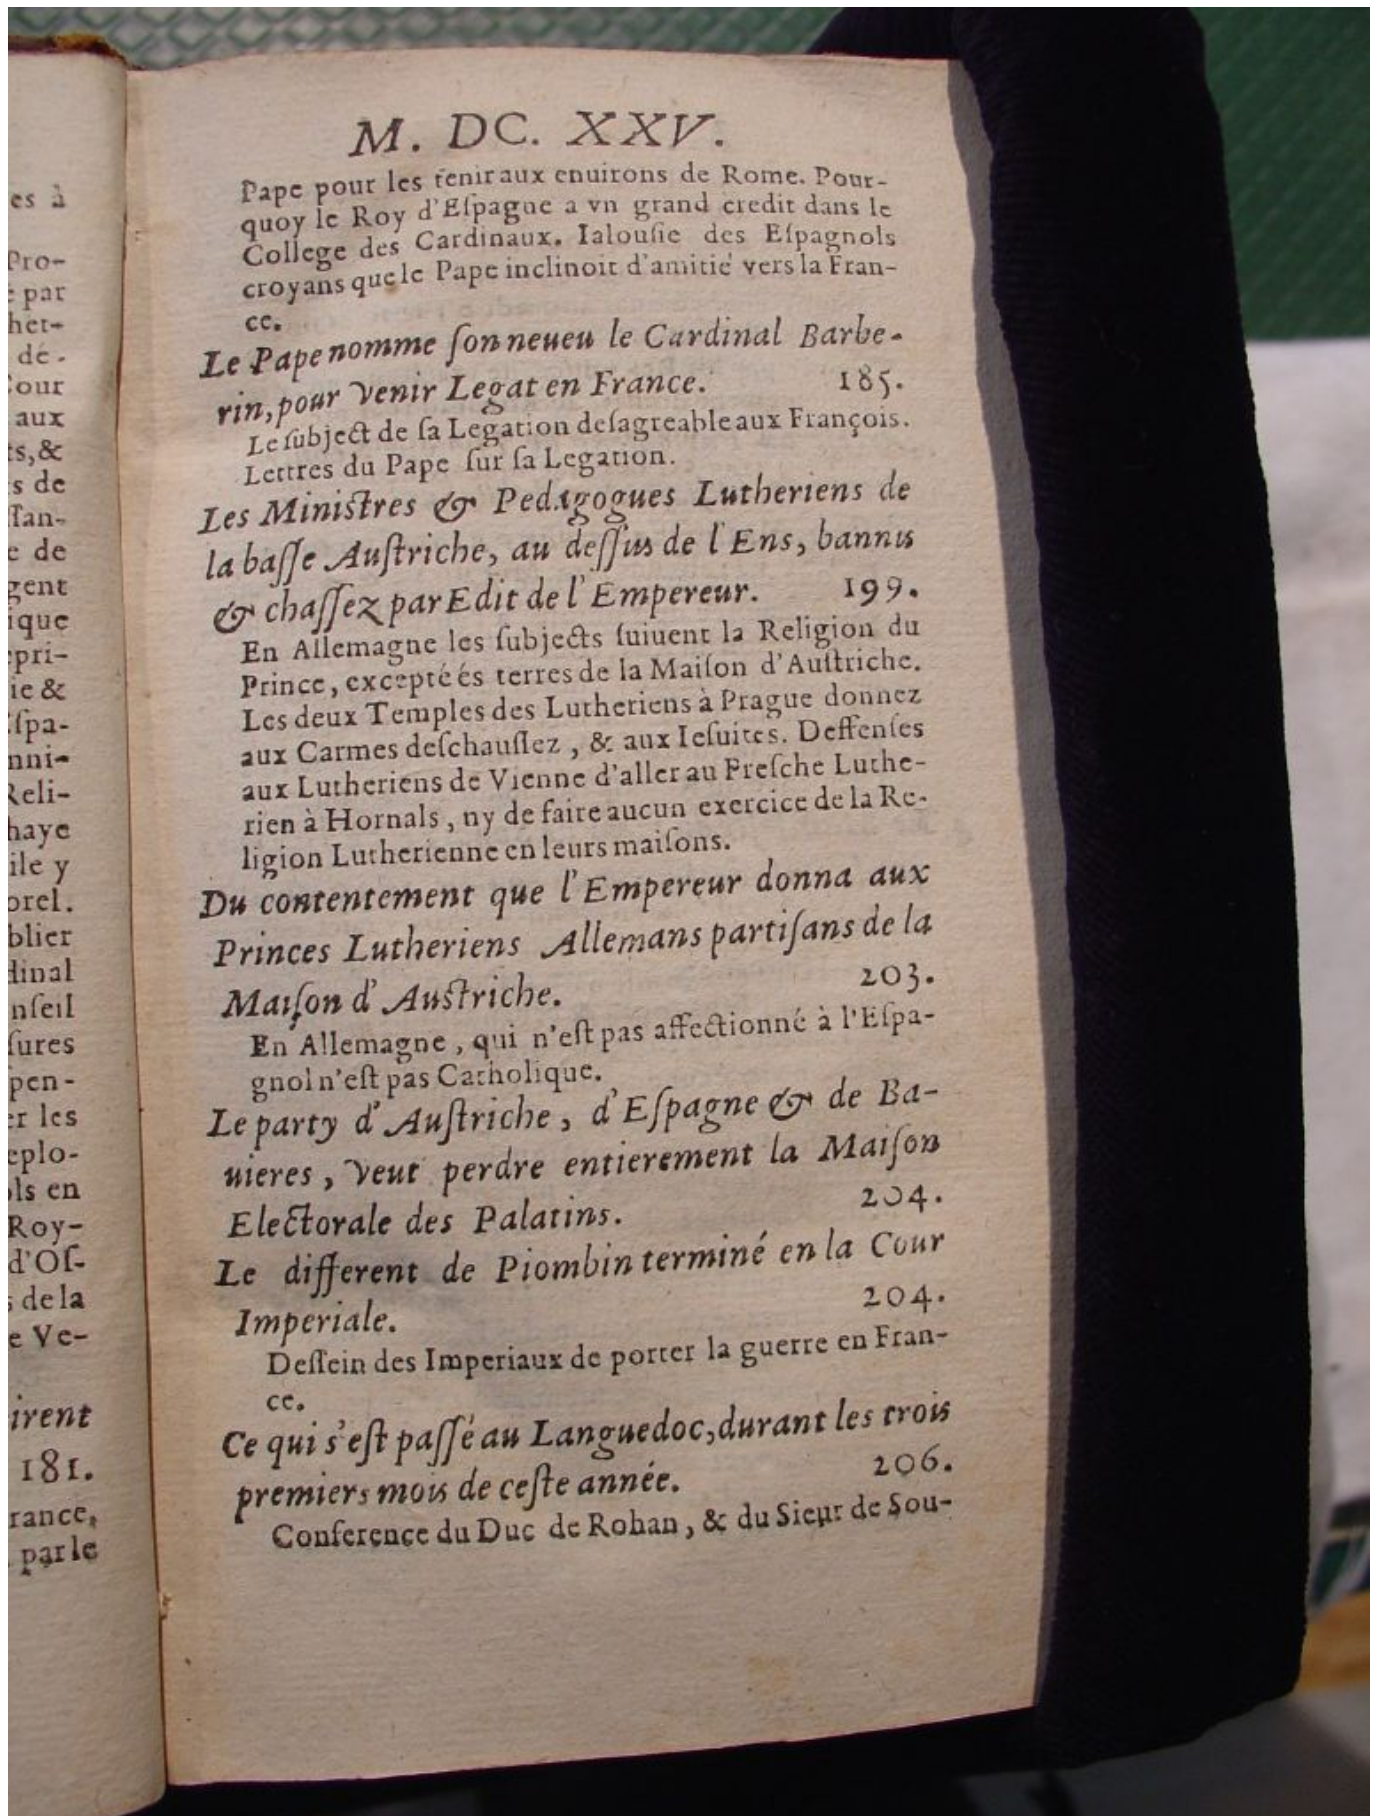 es à
Pro-
e par
her-
dé-
Cour
aux
ts, &
s de
ſſan-
e de
gent
ique
epri-
ie &
Eſpa-
nni-
Reli-
haye
ile y
orel.
blier
dinal
nſeil
ſures
pen-
er les
eplo-
ols en
Roy-
d'Oſ-
s de la
e Ve-
irent
181.
rance,
par le
M. DC. XXV.
Pape pour les tenir aux enuirons de Rome. Pour-
quoy le Roy d'Eſpagne a vn grand credit dans le
College des Cardinaux. Ialouſie des Eſpagnols
croyans que le Pape inclinoit d'amitié vers la Fran-
ce.
Le Pape nomme ſon neueu le Cardinal Barbe-
rin, pour venir Legat en France. 185.
Le ſubject de ſa Legation deſagreable aux François.
Lettres du Pape ſur ſa Legation.
Les Miniſtres & Pedagogues Lutheriens de
la baſſe Auſtriche, au deſſus de l'Ens, bannis
& chaſſez par Edit de l'Empereur. 199.
En Allemagne les ſubjects ſuiuent la Religion du
Prince, excepté és terres de la Maiſon d'Auſtriche.
Les deux Temples des Lutheriens à Prague donnez
aux Carmes deſchauſſez, & aux Ieſuites. Deffenſes
aux Lutheriens de Vienne d'aller au Preſche Luthe-
rien à Hornals, ny de faire aucun exercice de la Re-
ligion Lutherienne en leurs maiſons.
Du contentement que l'Empereur donna aux
Princes Lutheriens Allemans partiſans de la
Maiſon d'Auſtriche. 203.
En Allemagne, qui n'eſt pas affectionné à l'Eſpa-
gnol n'eſt pas Catholique.
Le party d'Auſtriche, d'Eſpagne & de Ba-
uieres, veut perdre entierement la Maiſon
Electorale des Palatins. 204.
Le different de Piombin terminé en la Cour
Imperiale. 204.
Deſſein des Imperiaux de porter la guerre en Fran-
ce.
Ce qui s'eſt paſſé au Languedoc, durant les trois
premiers mois de ceſte année. 206.
Conference du Duc de Rohan, & du Sieur de Sou-